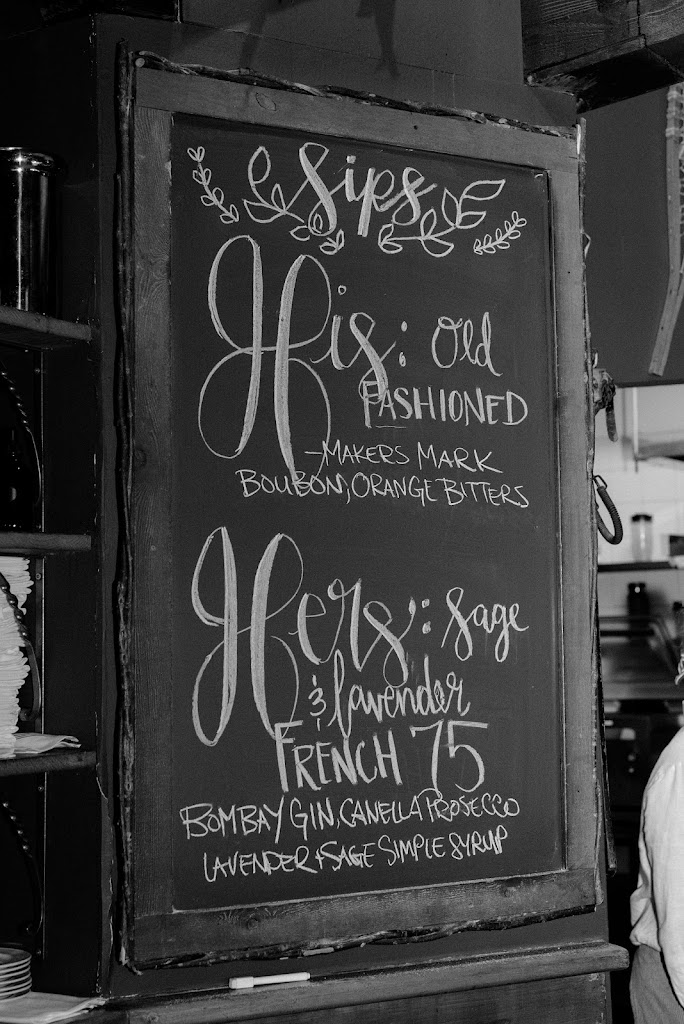 Sips
His: Old
FASHIONED
-MAKERS MARK
BOUBON, ORANGE BITTERS
Hers: Sage
& lavender
FRENCH 75
BOMBAY GIN, CANELLA PROSECCO
LAVENDER + SAGE SIMPLE SYRUP